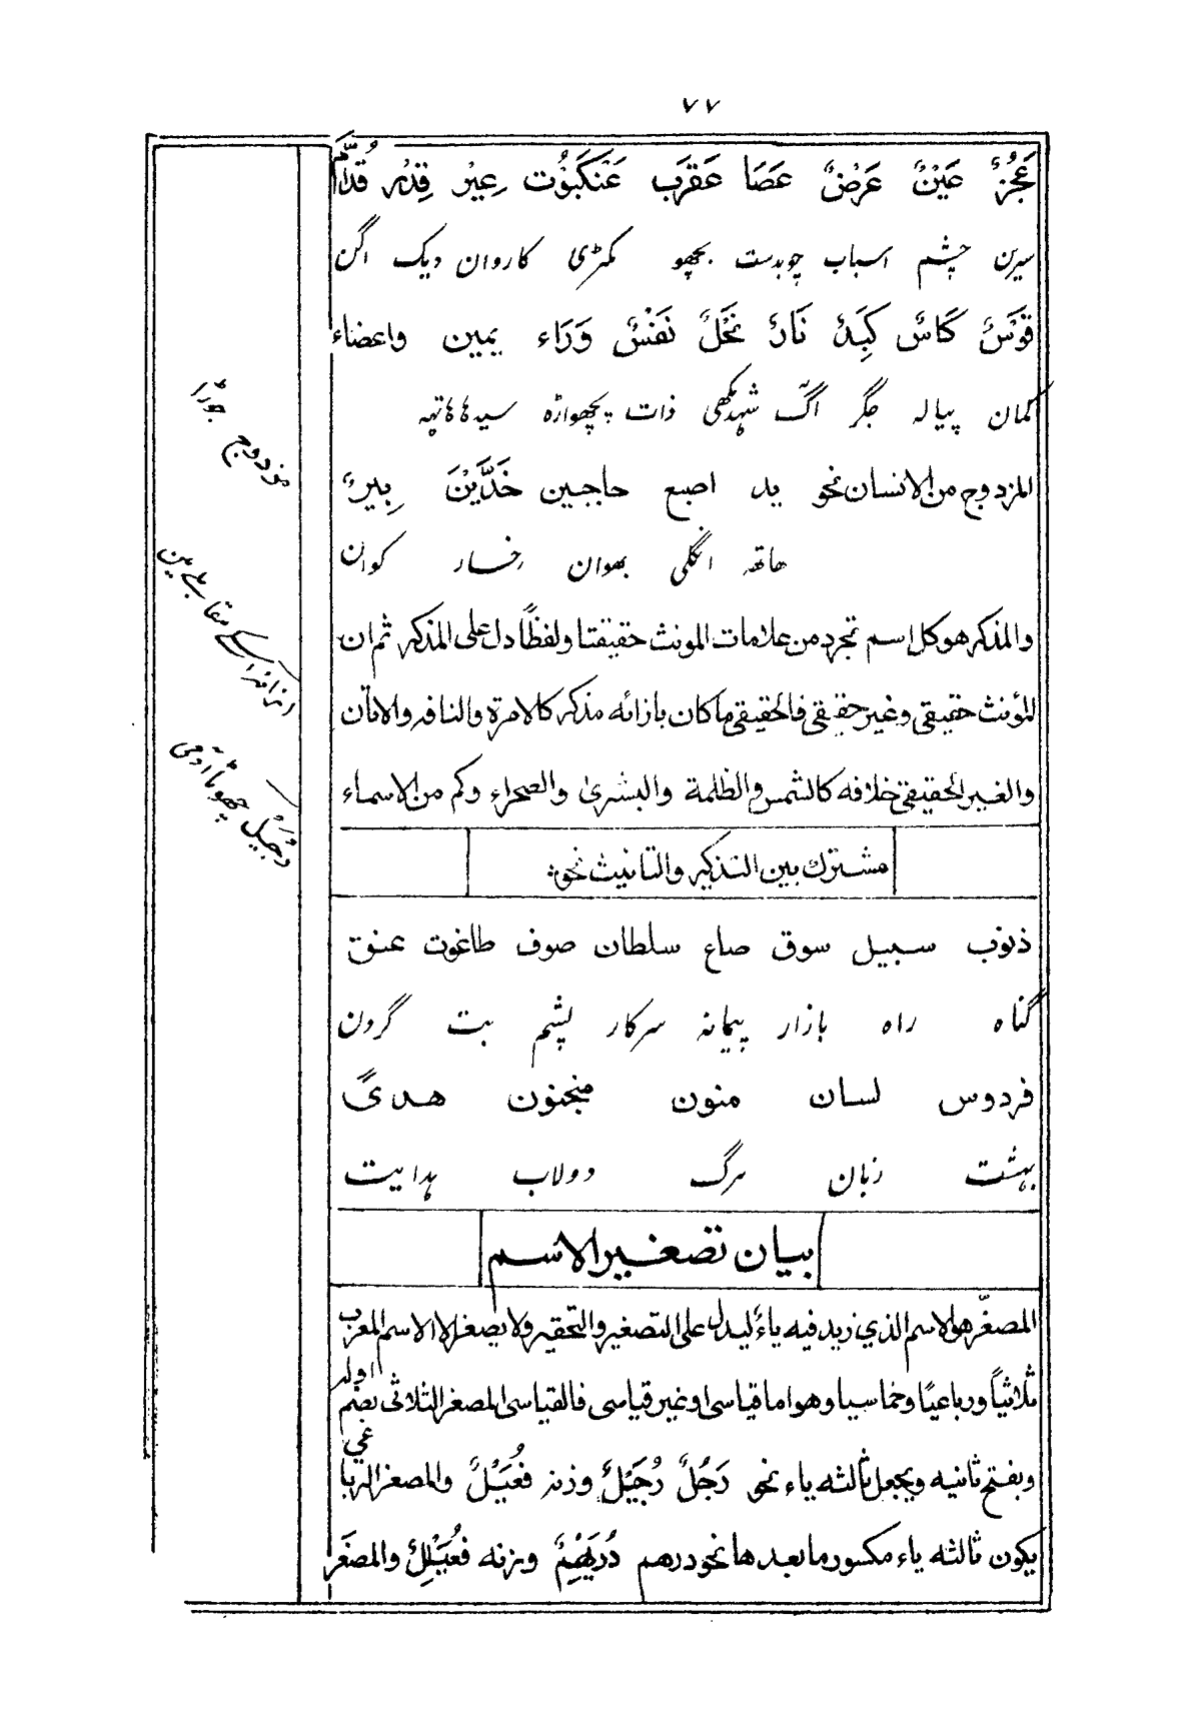 ۷۷
عَجُزٌ عَيْنٌ عَرْضٌ عَصَا عَقرَب عَنْكَبُوْت عِيْر قِدْر قُدَّامَ
سیرن چشم اسباب چوبدست بچھو مکڑی کاروان دیگ اگن
قَوْسٌ كَاسٌ كَبِدٌ نَارٌ نَحْلٌ نَفْسٌ وَرَاء يمين واعضاء
کمان پیالہ جگر آگ شہد مکھی ذات پچھواڑہ سیدھا ہاتھ
المزدوج من الانسان نحو يد اصبع حاجبين خَدَّيْنَ بِيرٌ
ہاتھ انگلی بھوان رخسار کوان
والمذكر هو كل اسم تجرد من علامات المونث حقيقتا ولفظاً دل على المذكر ثم ان
المؤنث حقيقي وغير حقيقي فالحقيقي ما كان بازائه مذكر كالامرة والناقه والاتان
والغير الحقيقي خلافه كالشمس والظلمة والبشرىٰ والصحراء وكم من الاسماء
مشترك بين التذكير والتانيث نحو:
ذنوب سبيل سوق صاع سلطان صوف طاغوت عنق
گناہ راہ بازار پیمانہ سرکار پشم بت گردن
فردوس لسان منون منجنون هدىً
بہشت زبان مرگ دولاب ہدایت
بيان تصغير الاسم
المصغّر هو الاسم الذي زيد فيه ياءً ليدل على التصغير والتحقير ولا يصغر الا الاسم المعرب
ثلاثياً ورباعيًا وخماسيا وهو اما قياسى او غير قياسى فالقياسى المصغر الثلاثى بضم اوله
وبفتح ثانيه ويجعل ثالثه ياء نحو رَجُلٌ رُجَيْلٌ وزنه فُعَيْلٌ والمصغر الرباعي
يكون ثالثه ياء مكسور ما بعدها نحو درهم دُرَيْهِمٌ وزنه فُعَيْلِلٌ والمصغر
مزدوج جوڑا
اسکے مقابلے مین
رُجَيْل چھوٹا آدمی